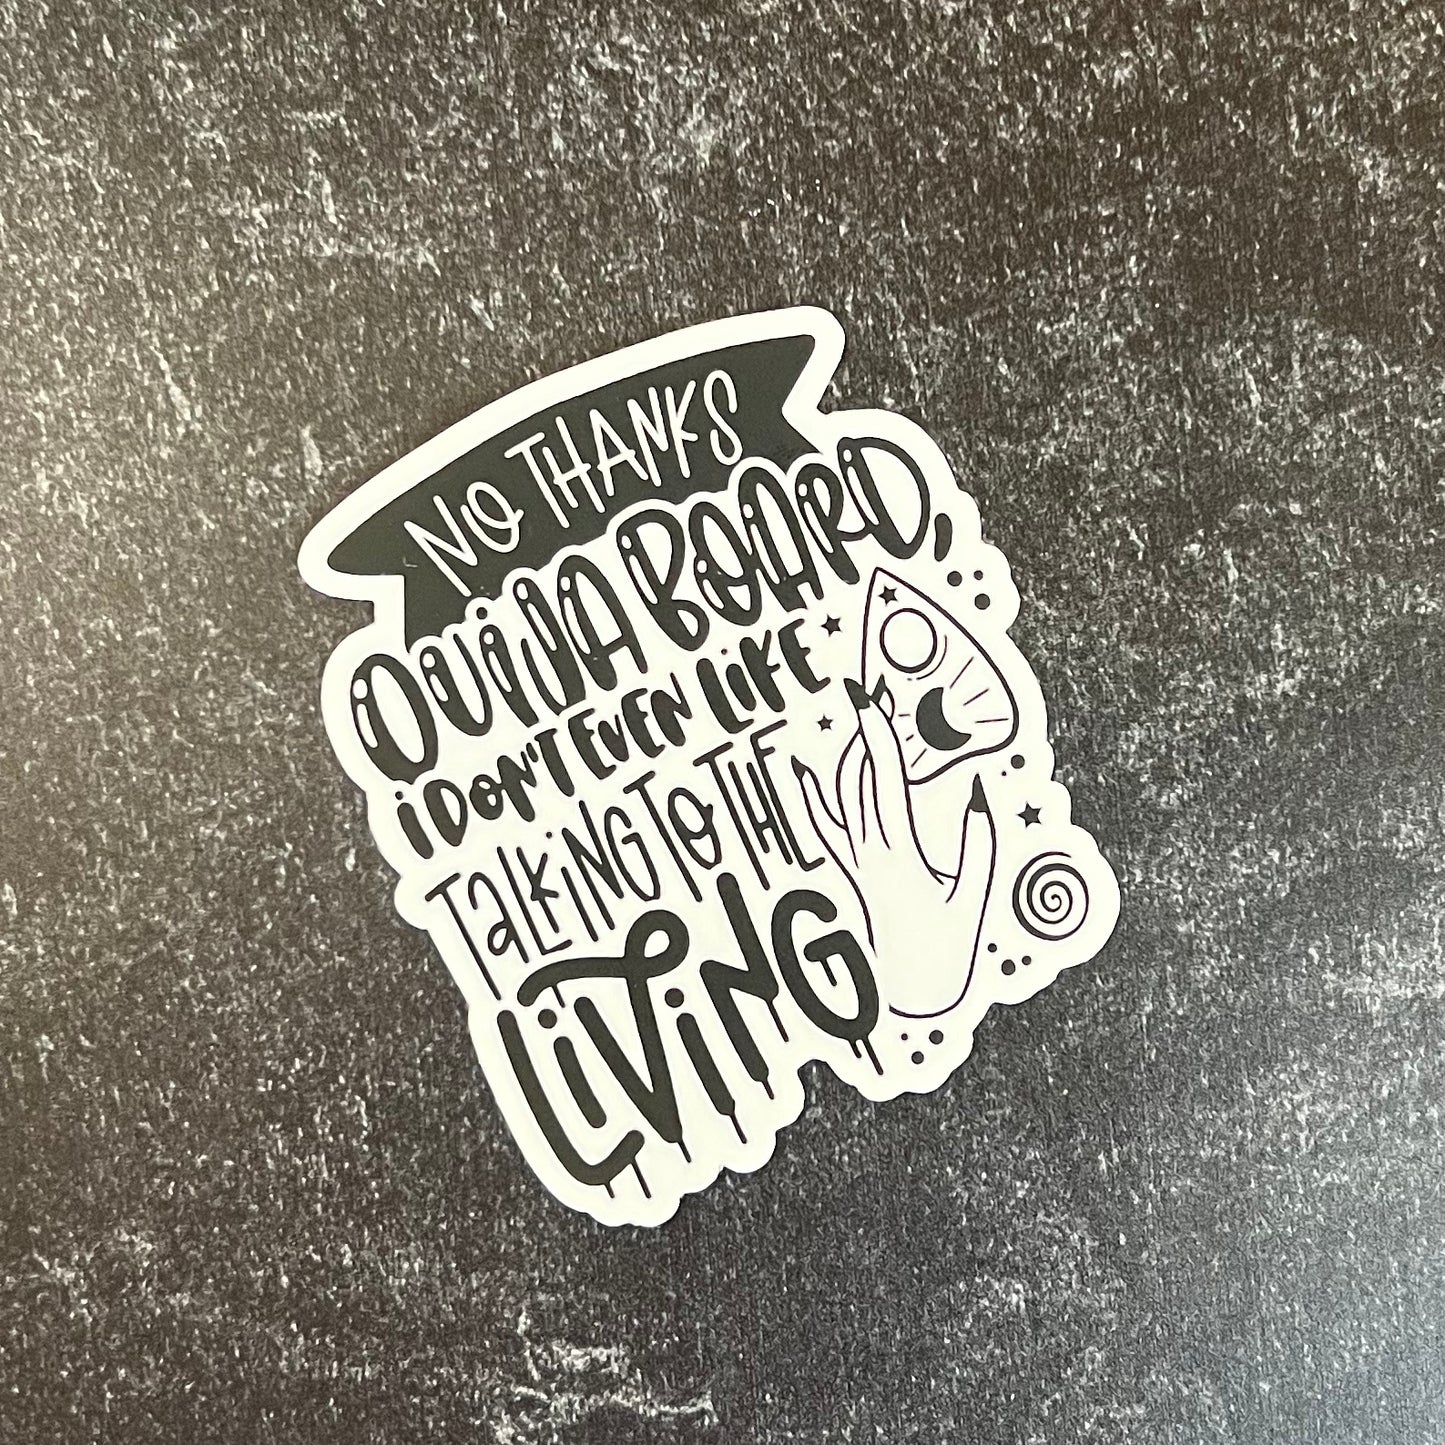 NO THANKS
OUIJA BOARD,
i DON'T EVEN LiKE
TaLKiNG TO THE
LiViNG